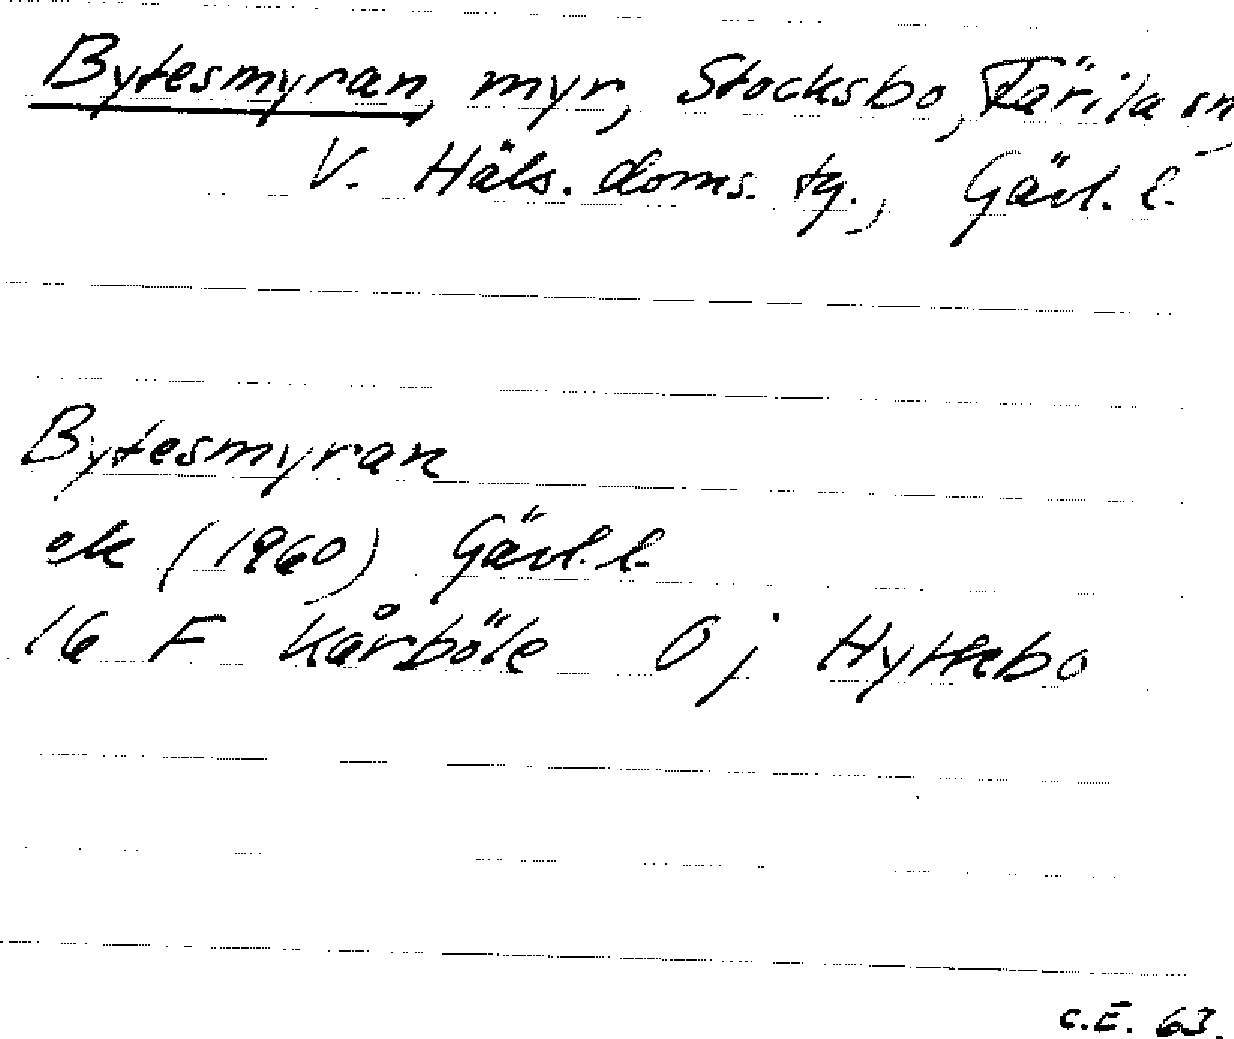 Bytesmyran, myr, Stocksbo, Färila sn
V. Häls. doms. tg., Gävl. l.
Bytesmyran
ek (1960) Gävl. l.
16 F Kårböle 0 j Hyttebo
C.E. 63.